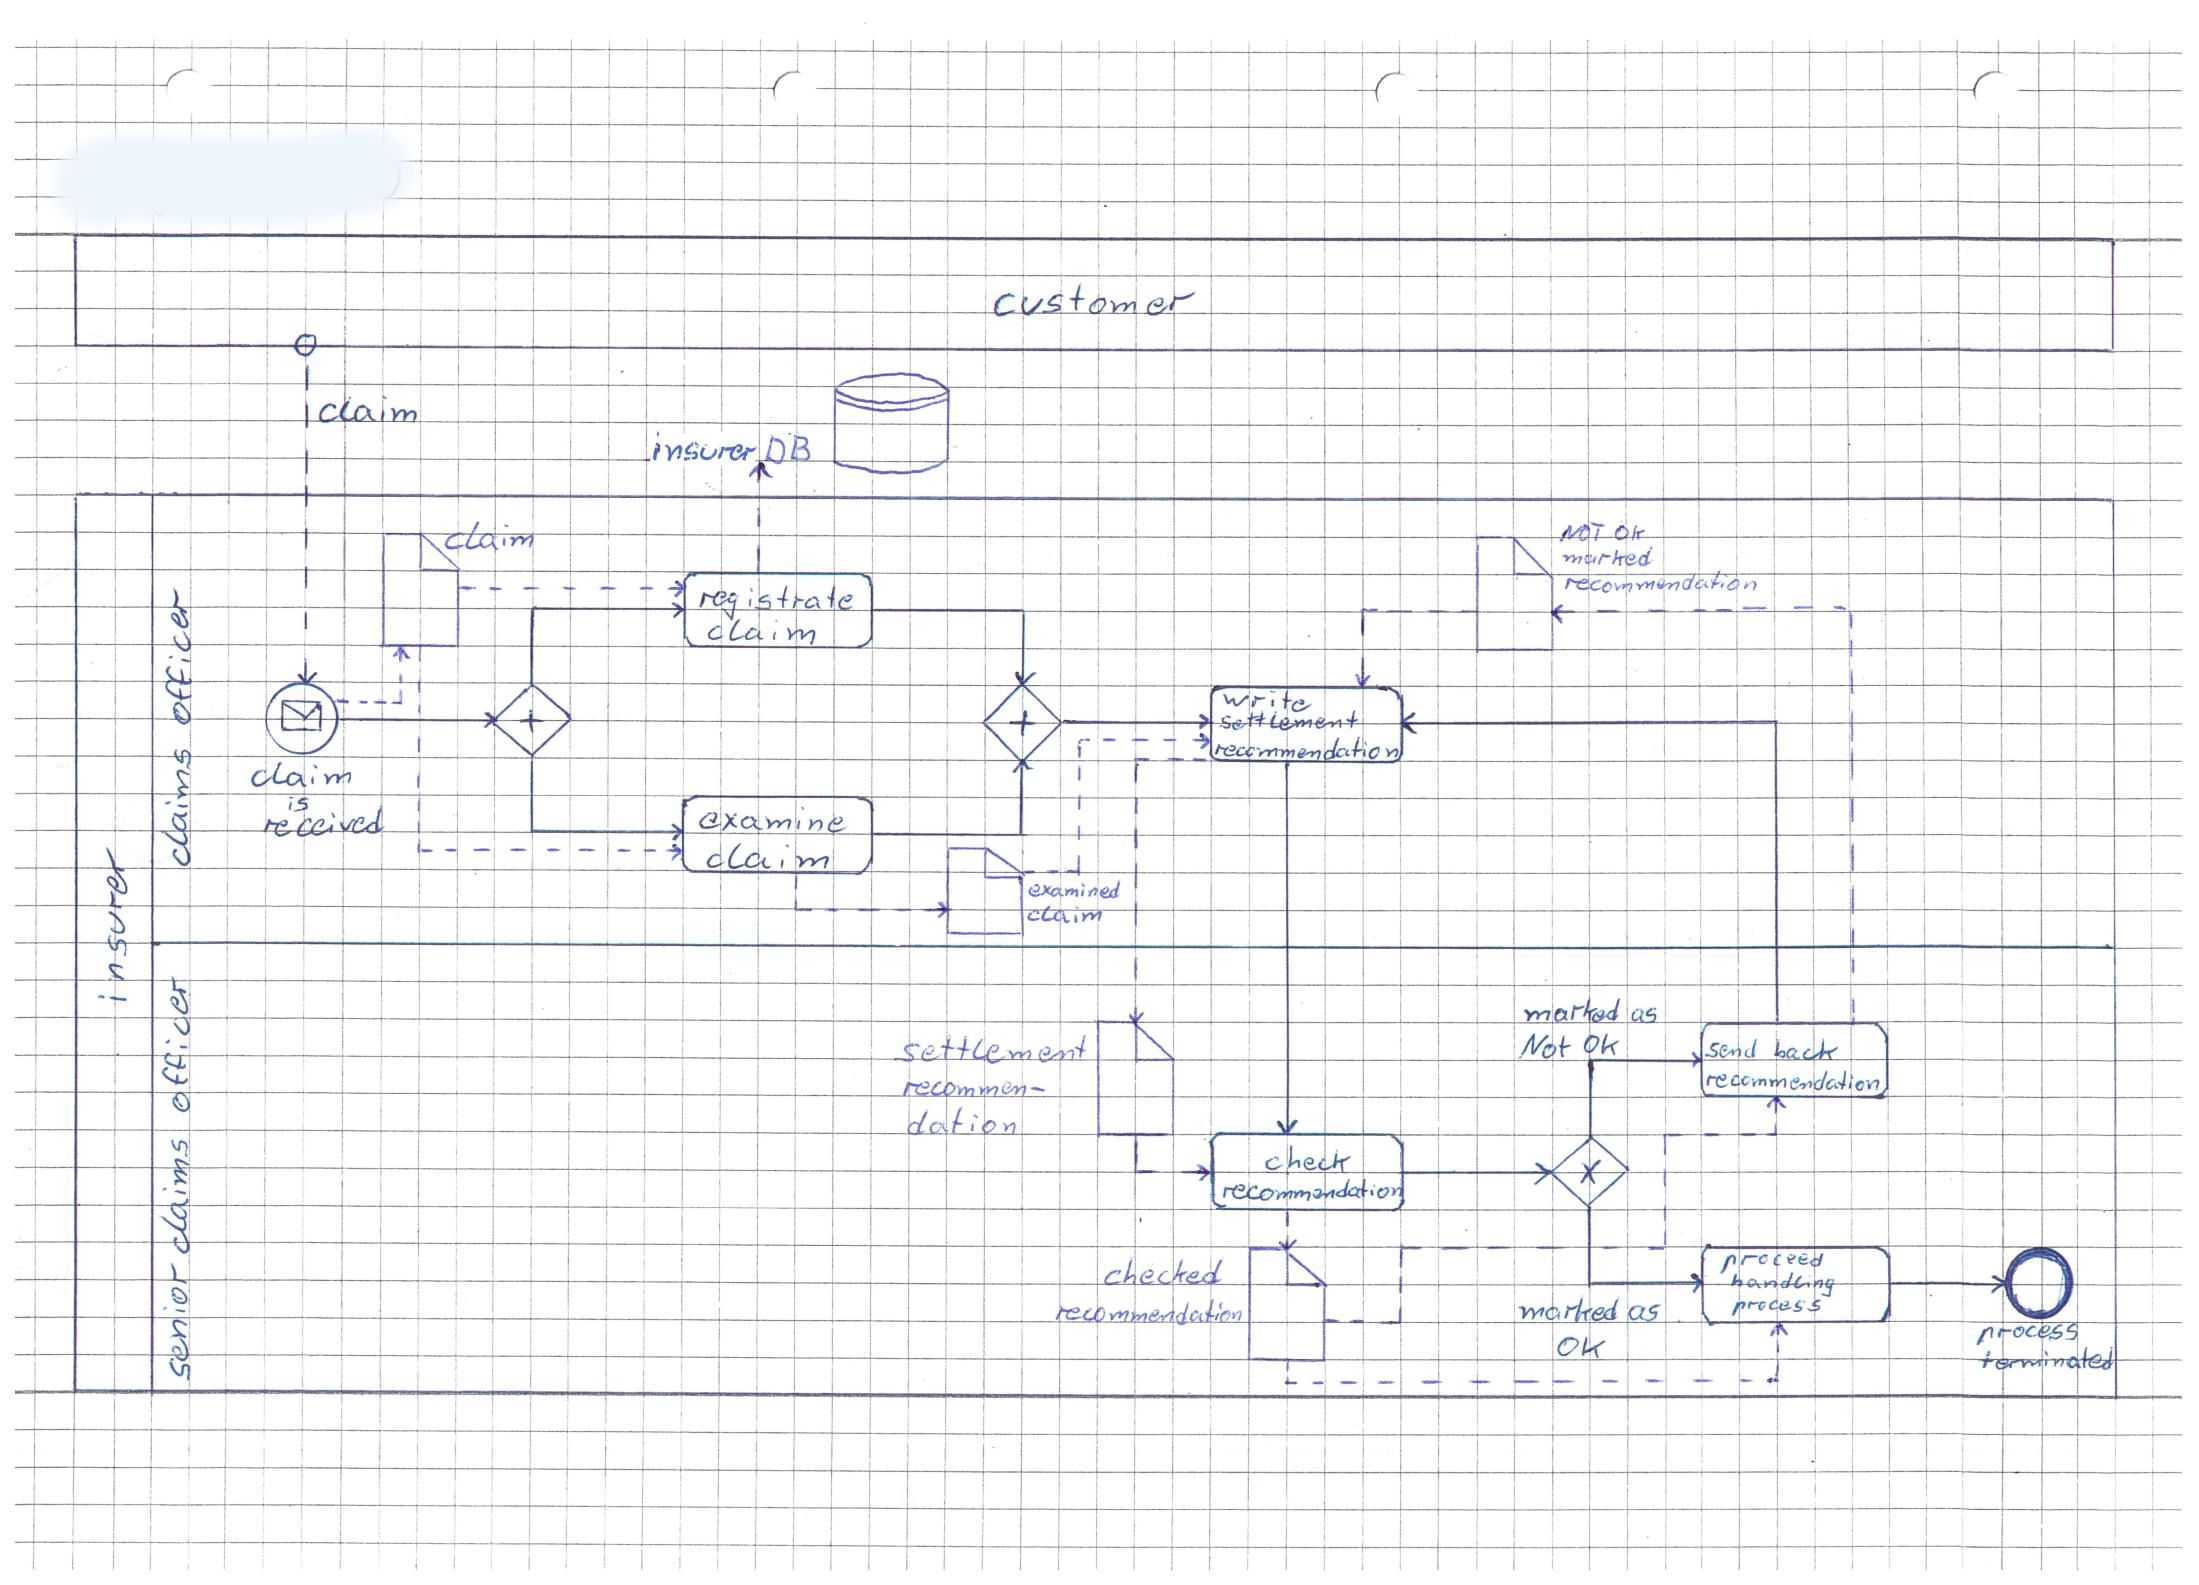 customer
claim
insurer DB
insurer
claims officer
claim
is
received
claim
registrate
claim
examine
claim
examined
claim
write
settlement
recommendation
NOT OK
marked
recommendation
senior claims officer
settlement
recommen-
dation
check
recommendation
checked
recommendation
marked as
Not OK
send back
recommendation
marked as
OK
proceed
handling
process
process
terminated